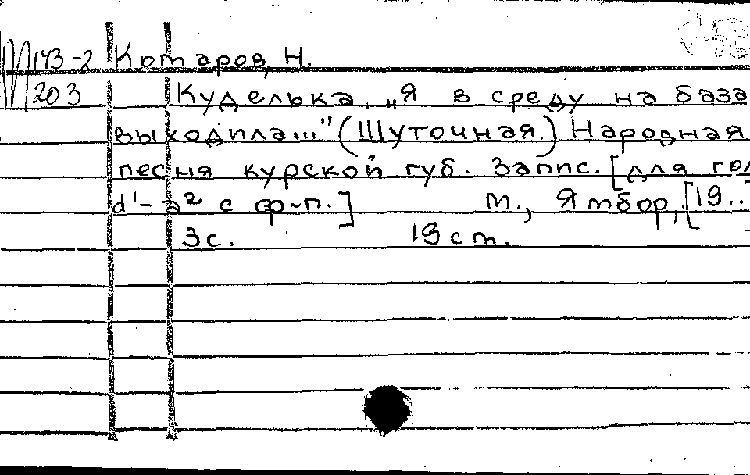 М 173-2 Котаров, Н.
203 Куделька. „Я в среду на база
выходила..." (Шуточная.) Народная
песня курской губ. Запис. [для гол
d¹-a² с ф-п.] М., Ямбор, [19..
3с. 19 cm.